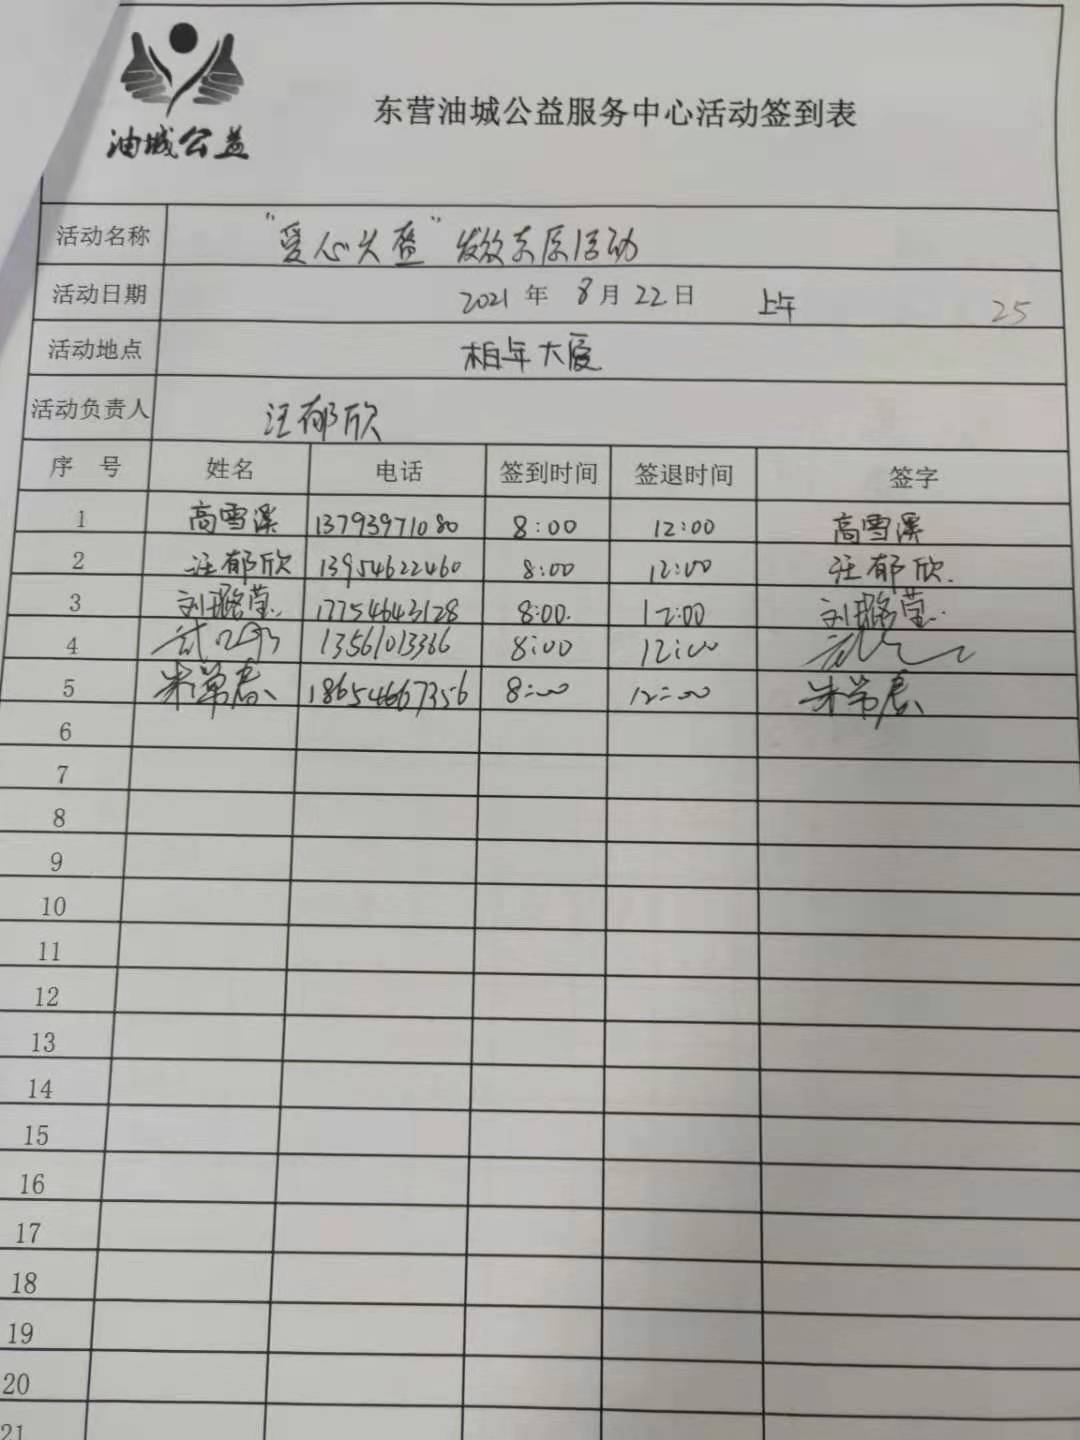 油城公益
东营油城公益服务中心活动签到表
活动名称 "爱心头盔"发放东原活动
活动日期 2021年 8月22日 上午 25
活动地点 柏年大厦
活动负责人 汪郁欣
序号 姓名 电话 签到时间 签退时间 签字
1 高雪溪 13793971080 8:00 12:00 高雪溪
2 汪郁欣 13954622460 8:00 12:00 汪郁欣.
3 刘璐莹. 17754643128 8:00. 12:00 刘璐莹.
4 13561013386 8:00 12:00
5 朱常春 18654667356 8:00 12:00 朱常春
6
7
8
9
10
11
12
13
14
15
16
17
18
19
20
21